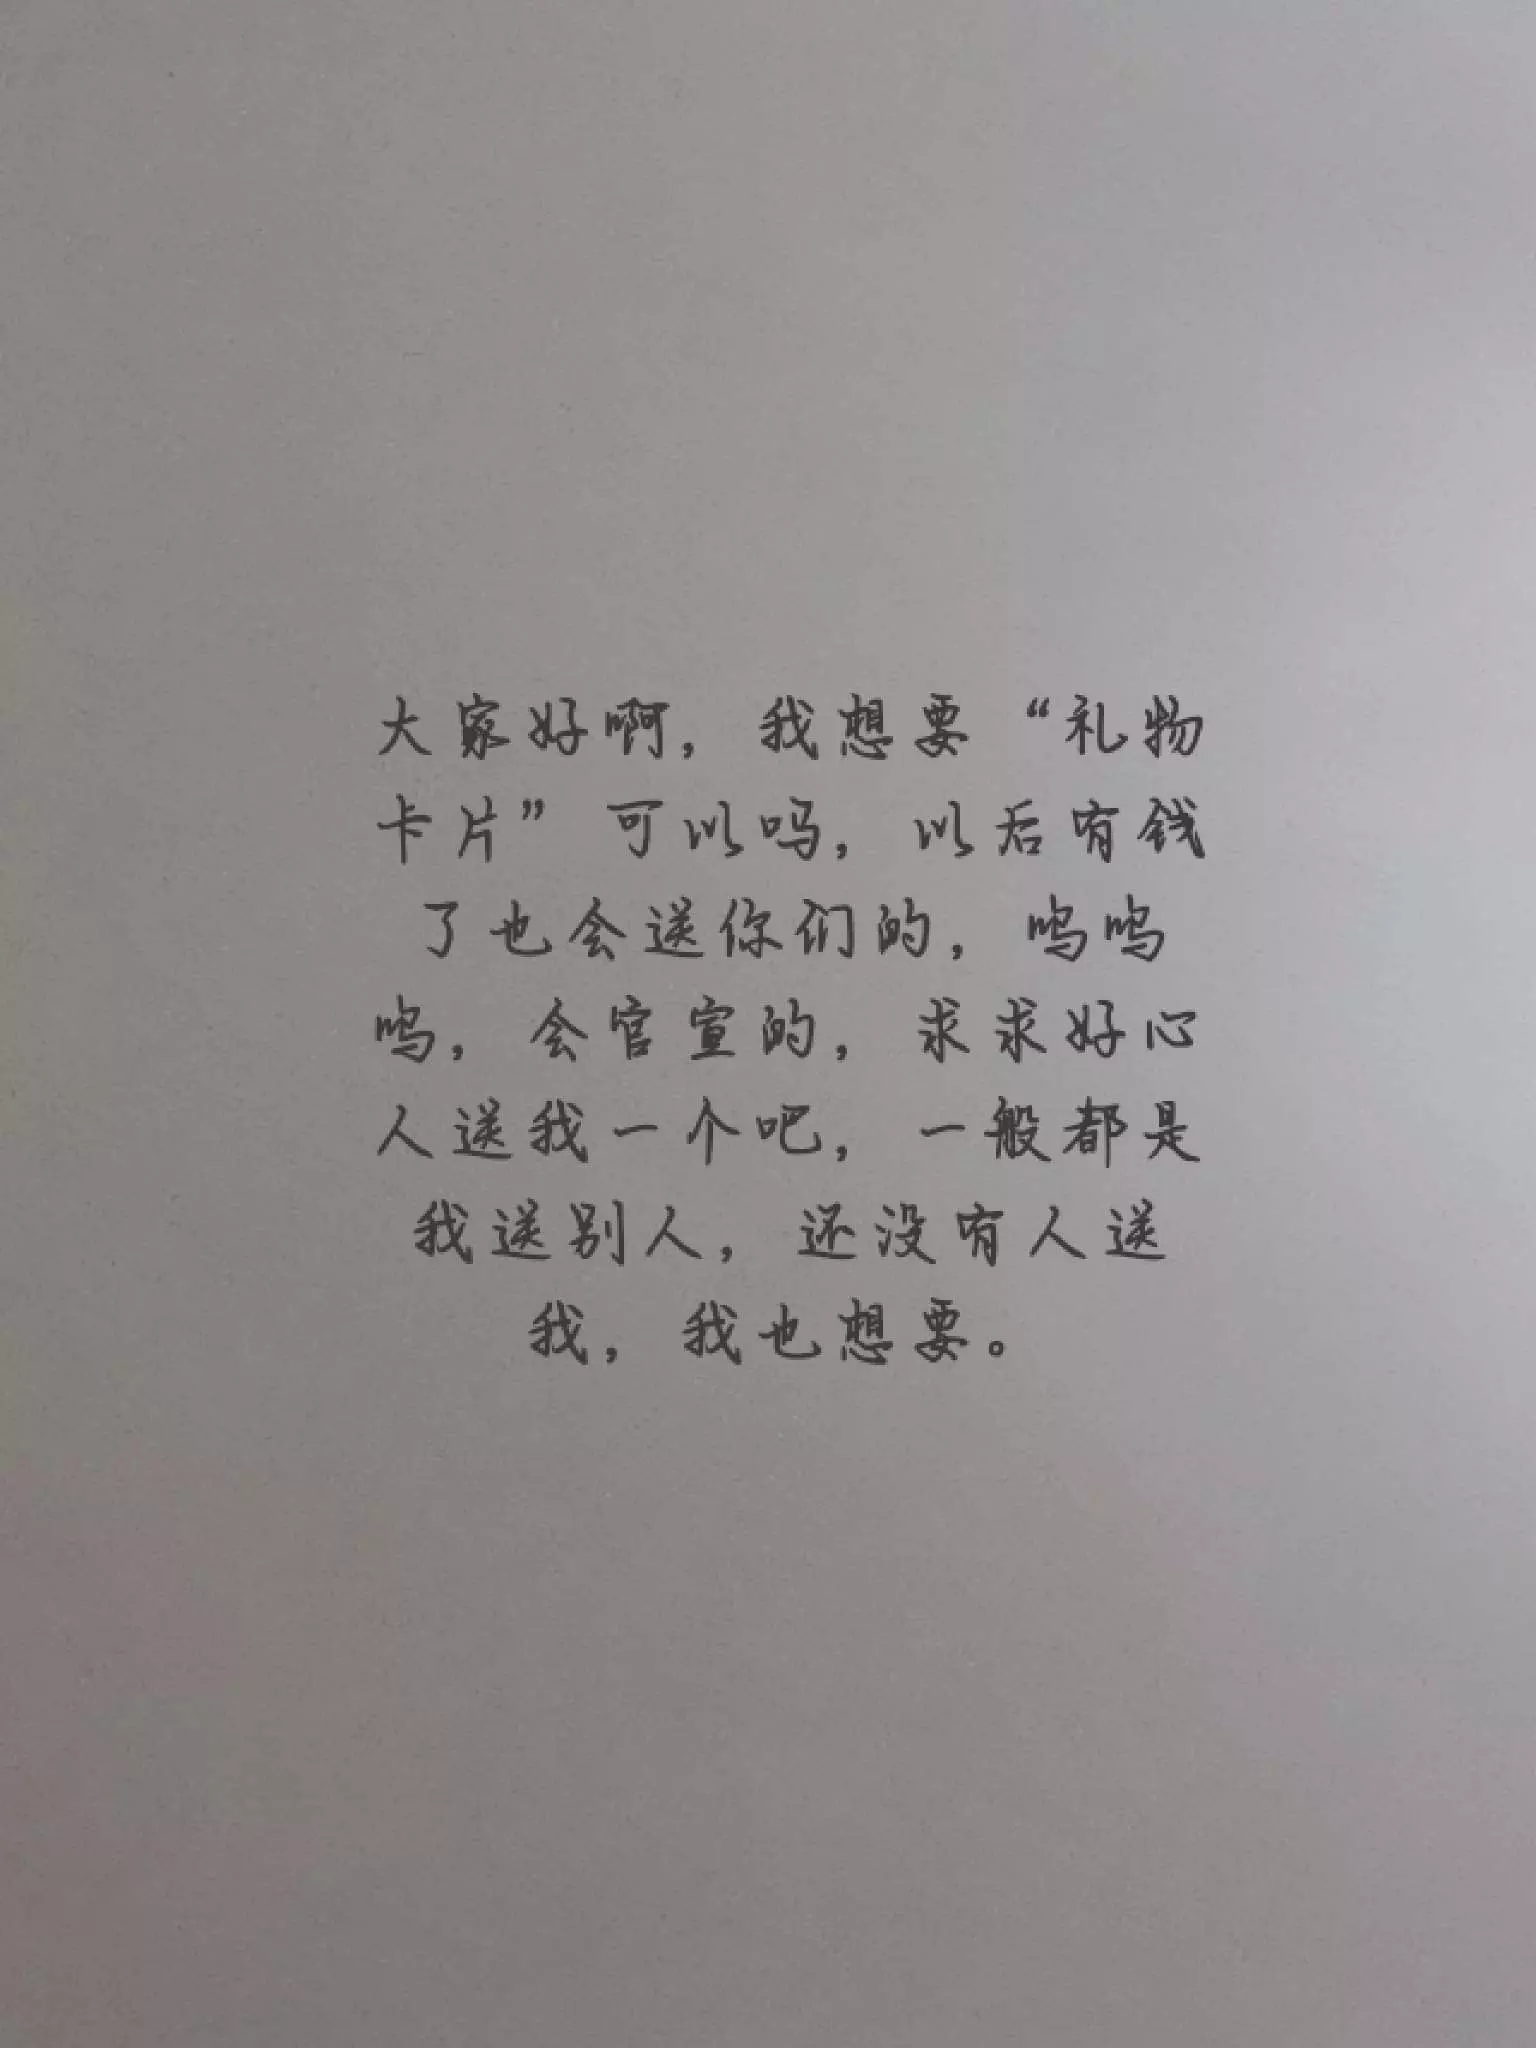 大家好啊，我想要“礼物
卡片”可以吗，以后有钱
了也会送你们的，呜呜
呜，会官宣的，求求好心
人送我一个吧，一般都是
我送别人，还没有人送
我，我也想要。